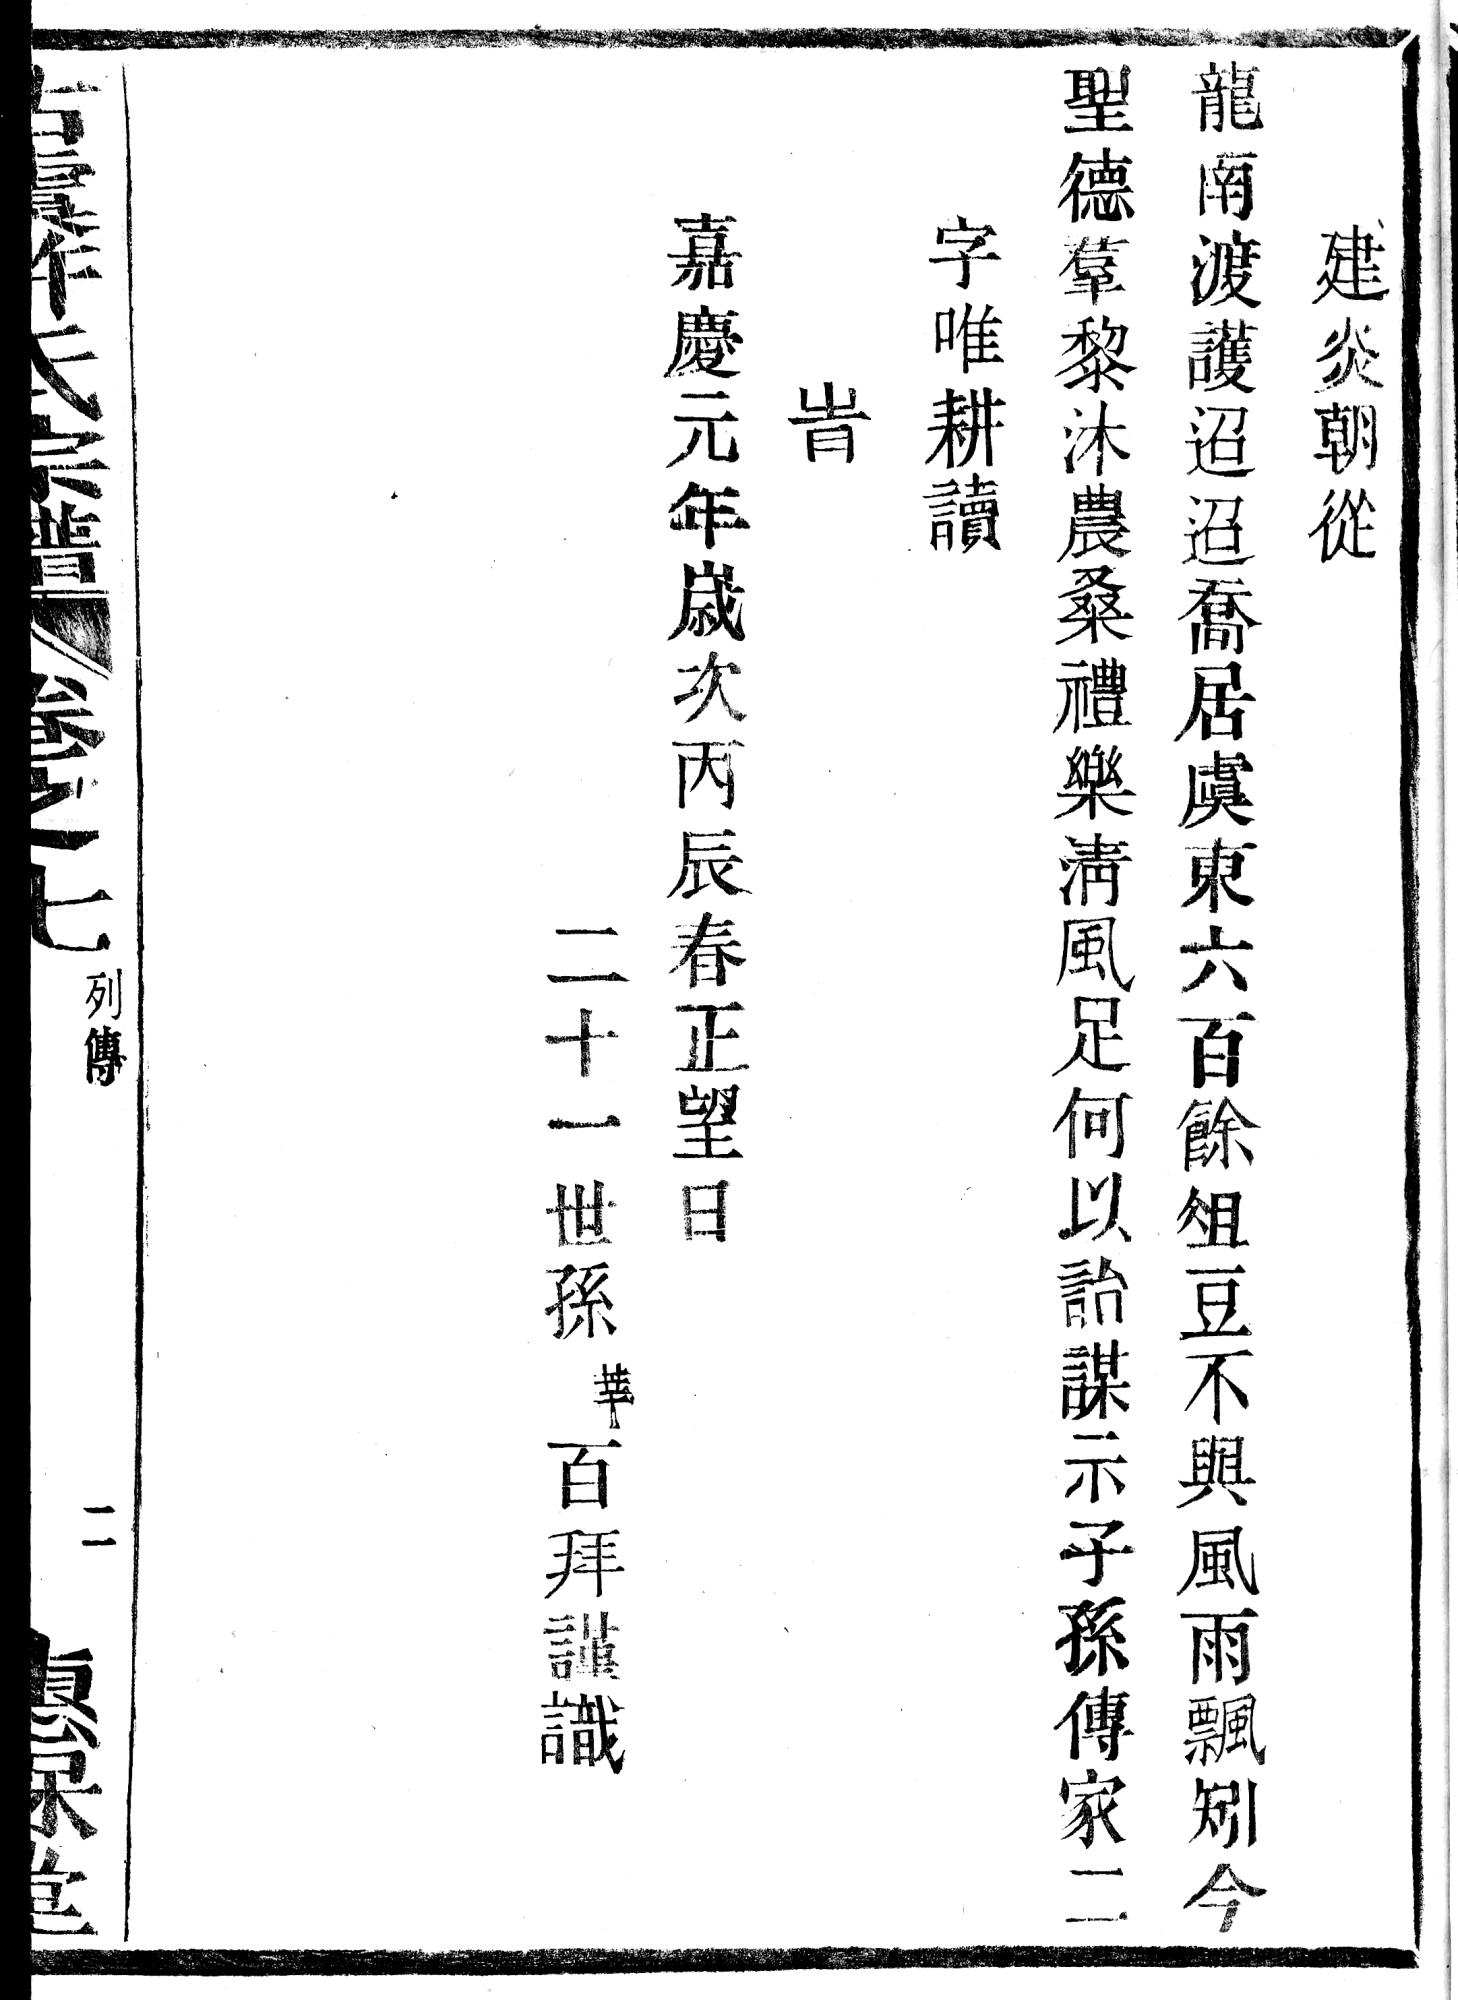 建炎朝從
龍南渡護迢迢喬居虞東六百餘俎豆不與風雨飄矧今
聖德羣黎沐農桑禮樂淸風足何以詒謀示子孫傳家二
字唯耕讀
旹
嘉慶元年歲次丙辰春正望日
二十一世孫華百拜謹識
氏宗譜 卷之七 列傳 二 惠保堂